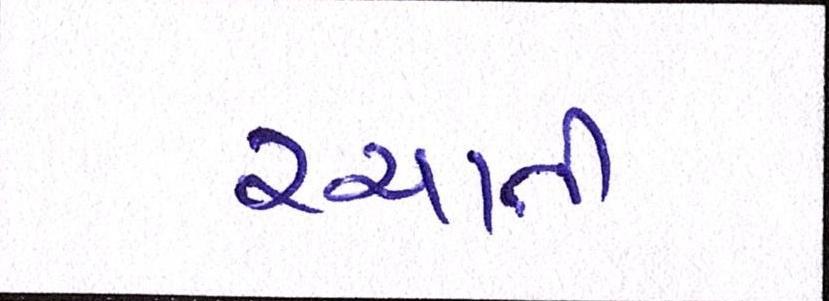 રચાતી